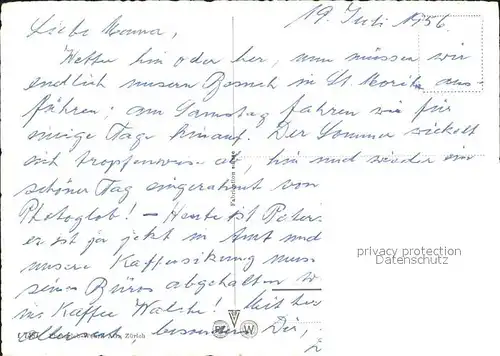 19. Juli 1956.
Liebe Mama,
Wetter hin oder her, nun müssen wir
endlich unsern Besuch in St. Moritz aus-
führen; am Samstag fahren wir für
einige Tage hinauf. Der Sommer wickelt
sich tropfenweise ab, hin und wieder ein
schöner Tag eingerahmt von
Photoglob! – Heute ist Peter
er ist ja jetzt in Amt und
unsere Kaffeesitzung muss
seines Büros abgehalten w
ins Kaffee ! Mit her
Dir,
Zürich
privacy protection
Datenschutz